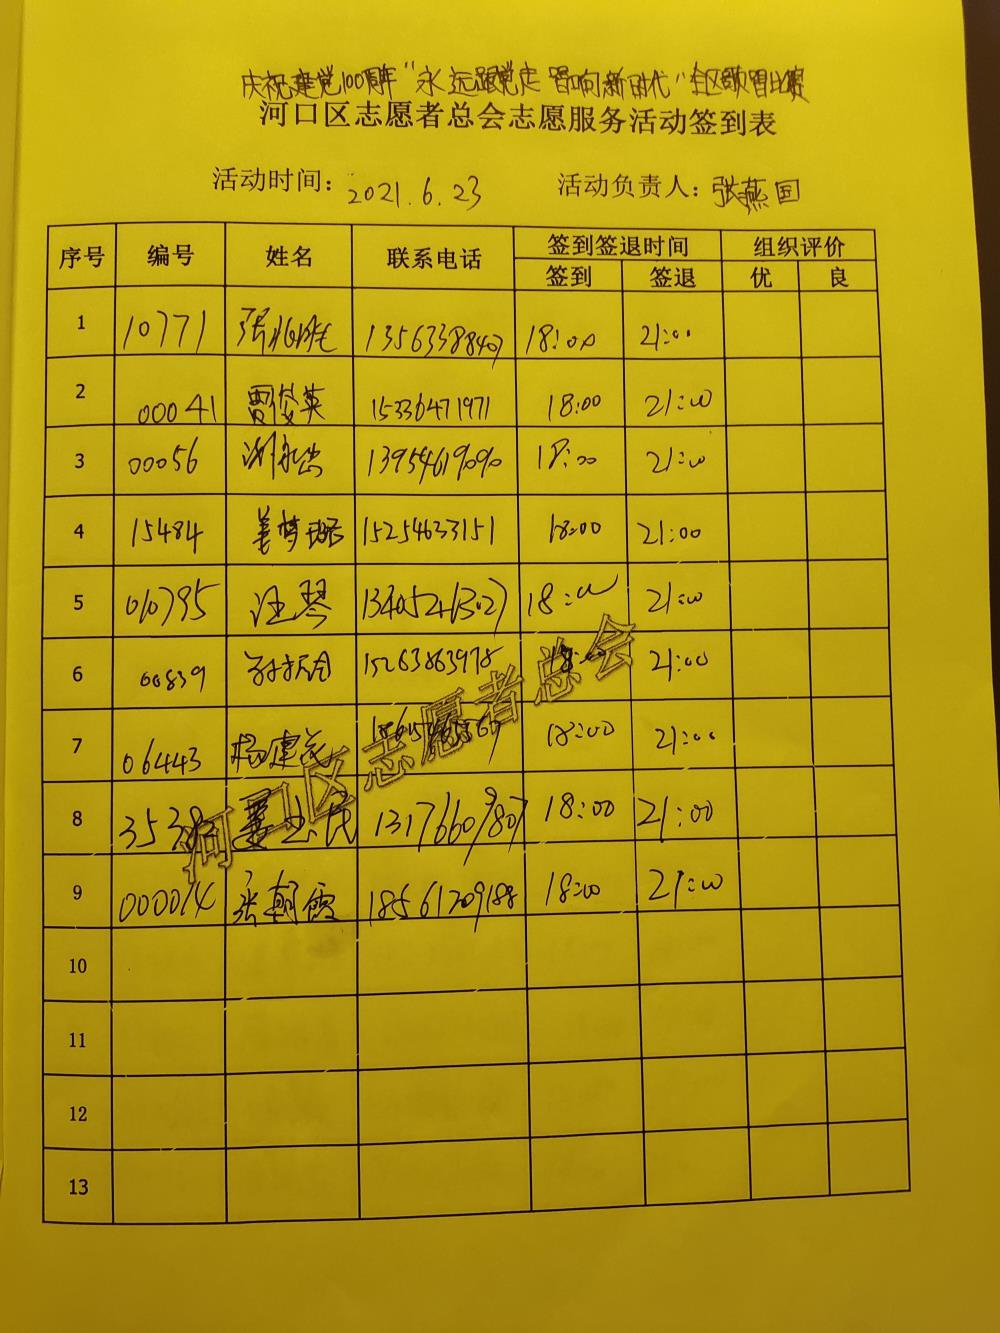 庆祝建党100周年"永远跟党走 唱响新时代"全区歌唱比赛
河口区志愿者总会志愿服务活动签到表
活动时间：2021.6.23 活动负责人：张燕国
序号 编号 姓名 联系电话 签到签退时间 组织评价
签到 签退 优 良
1 10771 13563388407 18:00 21:00
2 00041 贾俊英 15336471971 18:00 21:00
3 00056 13954619090 18:00 21:00
4 15484 姜梦璐 15254633151 18:00 21:00
5 010795 汪琴 18:00 21:00
6 00839 15263863978 18:00 21:00
7 06443 杨建民 18:00 21:00
8 13176609807 18:00 21:00
9 000014 张朝霞 18561209188 18:00 21:00
10
11
12
13
河口区志愿者总会